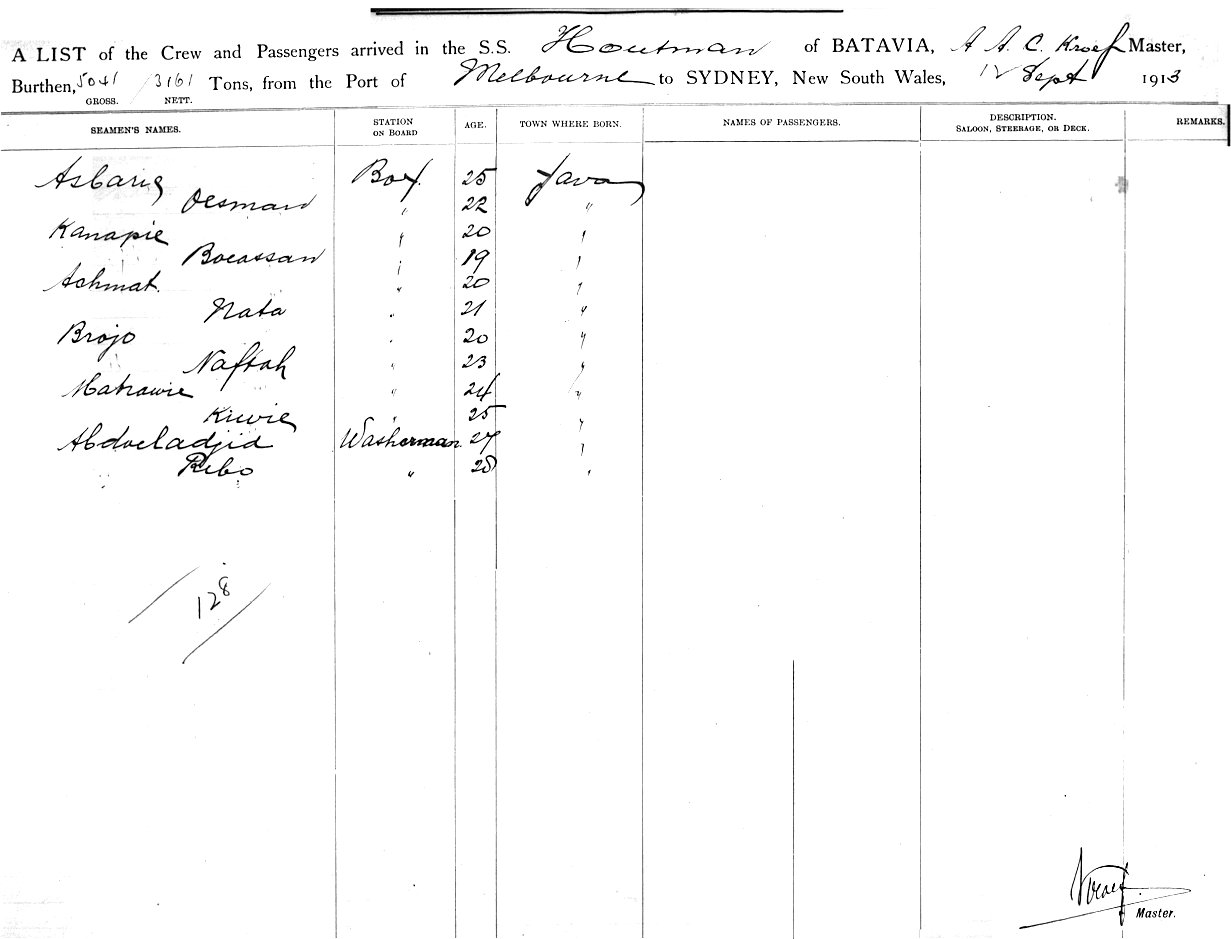 A LIST of the Crew and Passengers arrived in the S.S. Houtman of BATAVIA, A A. C. Kroef Master,
Burthen, 5041 / 3161 Tons, from the Port of Melbourne to SYDNEY, New South Wales, 12 Sept 1913
GROSS. NETT.
SEAMEN'S NAMES. STATION ON BOARD AGE. TOWN WHERE BORN. NAMES OF PASSENGERS. DESCRIPTION. SALOON, STEERAGE, OR DECK. REMARKS.
Asbarie Boy. 25 Java
Oesman " 22 "
Kanapie " 20 "
Bocassan " 19 "
Achmat. " 20 "
Nata " 21 "
Brojo " 20 "
Naftah " 23 "
Matrawie " 24 "
Kiwie " 25 "
Abdoeladjid Washerman 27 "
Ribo " 28 "
128
Kroef
Master.